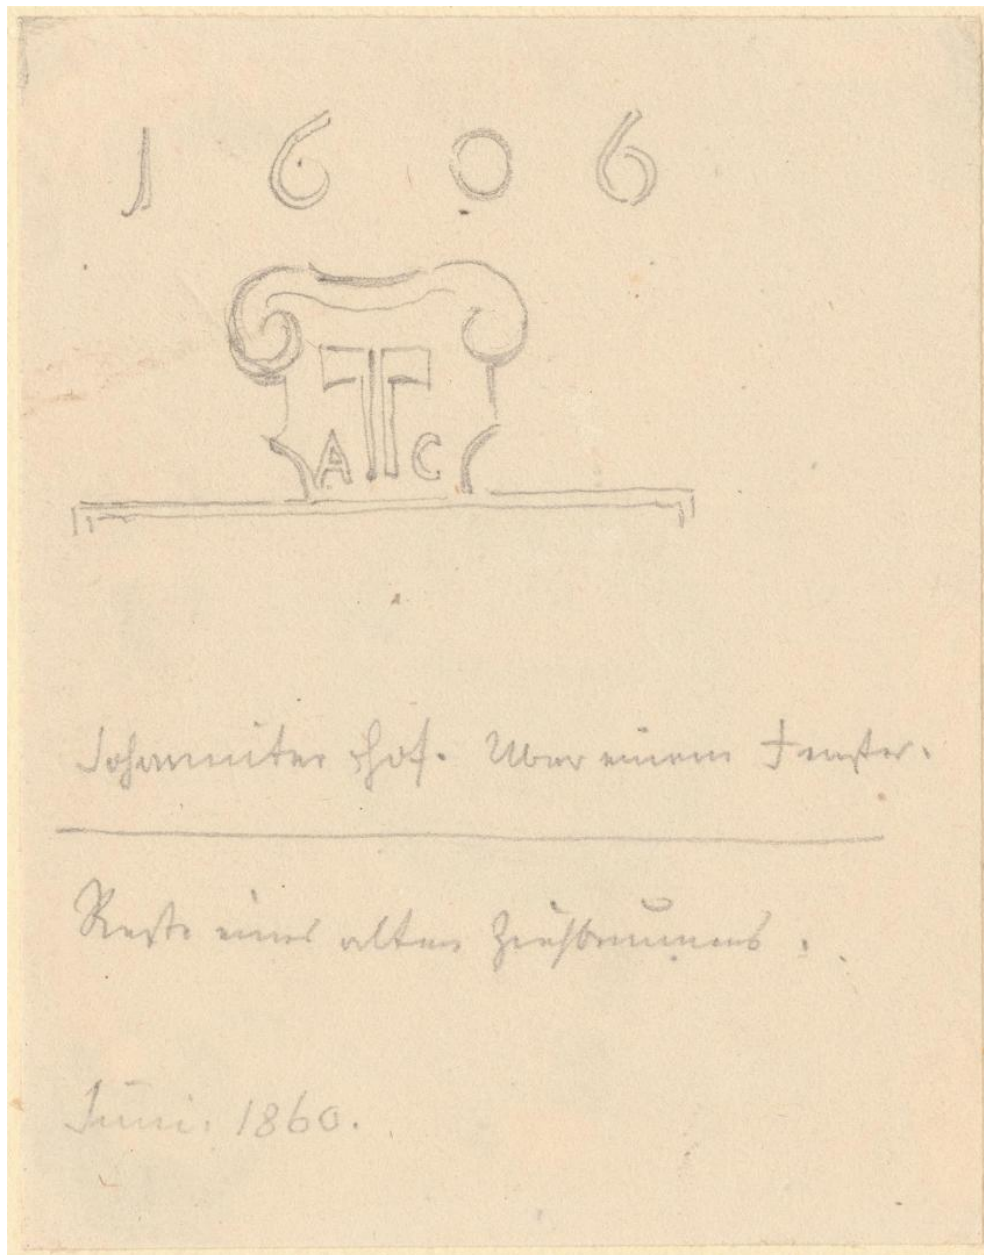 1606
A C
Johanniter Hof. Über einem Fenster.
Reste eines alten Ziehbrunnens.
Juni. 1860.